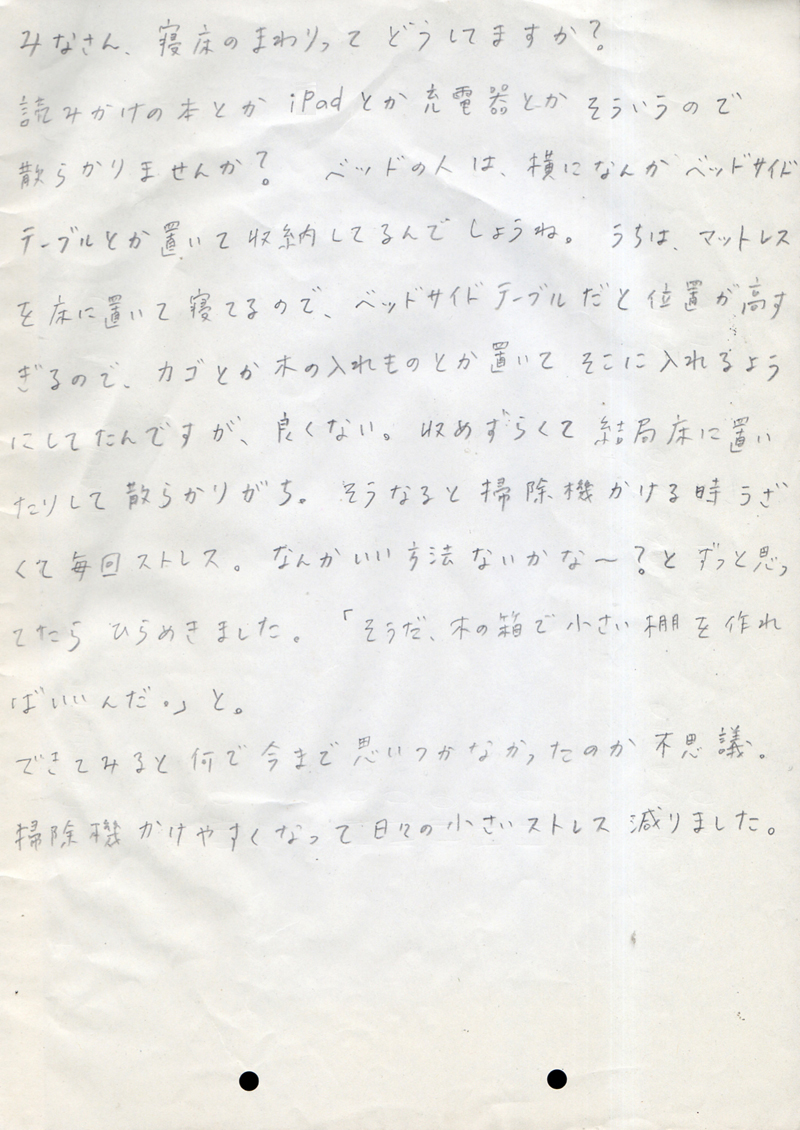 みなさん、寝床のまわりってどうしてますか?
読みかけの本とか iPadとか充電器とかそういうので
散らかりませんか? ベッドの人は、横になんかベッドサイド
テーブルとか置いて収納してるんでしょうね。 うちは、マットレス
を床に置いて寝てるので、ベッドサイドテーブルだと位置が高す
ぎるので、カゴとか木の入れものとか置いてそこに入れるよう
にしてたんですが、良くない。収めずらくて結局床に置い
たりして散らかりがち。そうなると掃除機かける時うざ
くて毎回ストレス。なんかいい方法ないかな〜?とずっと思っ
てたらひらめきました。「そうだ、木の箱で小さい棚を作れ
ばいいんだ。」と。
できてみると何で今まで思いつかなかったのか不思議。
掃除機かけやすくなって日々の小さいストレス減りました。